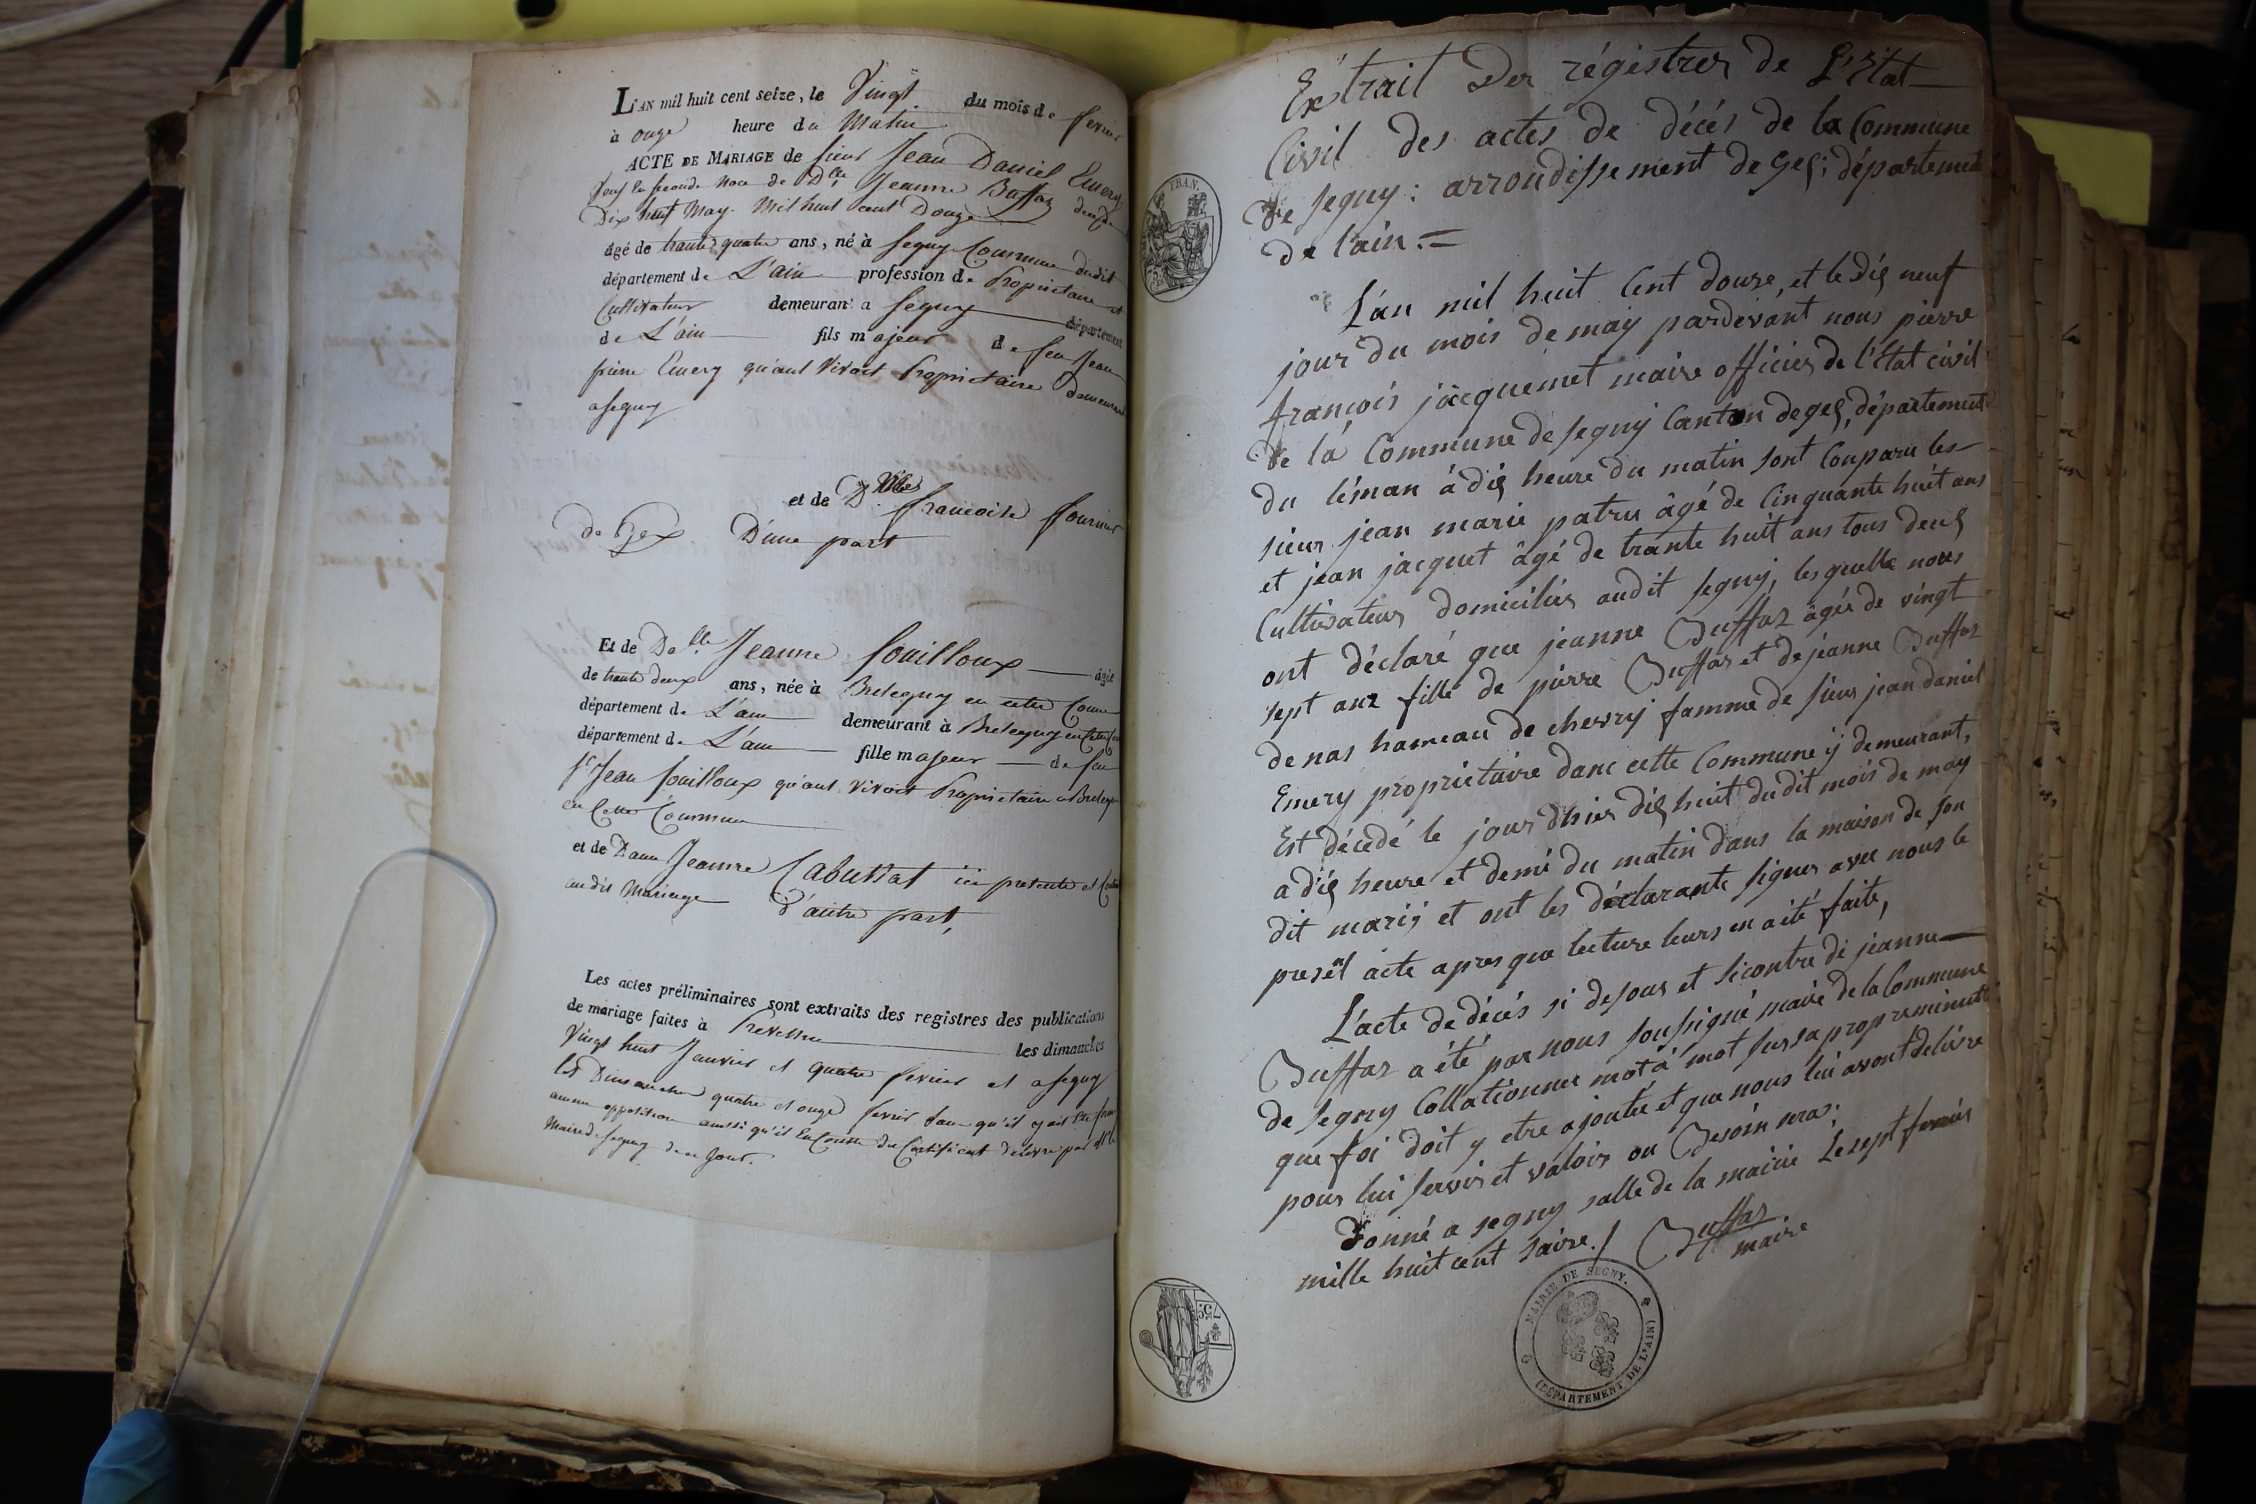 L'AN mil huit cent seize, le Vingt du mois de fevrier
à onze heure du Matin
ACTE DE MARIAGE de sieur Jean Daniel Emery
Veuf En seconde Noce de Dlle Jeanne Buffaz
Dix huit May Mil huit cent Douze
âgé de trante quatre ans, né à Segny Commune dudit
département de L'ain profession de Proprietaire et
Cultivateur demeurant a Segny département
de L'ain fils majeur de feu Jean
pierre Emery qu'ant Vivoit Proprietaire demeurant
a segny
et de francoise fournier
de Gex D'une part
Et de Delle Jeanne fouilloux âgée
de trante deux ans, née à Bretegny en cette Comm
département de L'ain demeurant à Bretegny en Cette
département de L'ain fille majeur de feu
sr Jean fouilloux qu'ant Vivoit Proprietaire a
en Cette Commune
et de Dame Jeanne Cabussat ici presente et
audit Mariage d'autre part,
Les actes préliminaires sont extraits des registres des publications
de mariage faites à Prevessin les dimanches
Vingt huit Janvier et quatre fevrier et a Segny
les Dimanches quatre et onze fevrier san qu'il y ait
aucune opposition ainsi qu'il En Conste du Certificat délivré par Mr le
Maire de Segny de ce Jour.
Extrait Des régistres de L'Etat
Civil des actes de décés de la Commune
de segny: arrondissement de gex; département
de l'ain.=
FRAN.
L'an mil huit Cent douze, et le dix neuf
jour du mois de may pardevant nous pierre
françois jacquemet maire officier de l'Etat civil
de la Commune de segny Canton de gex, département
du léman à dix heure du matin sont Comparu les
sieur jean marie patru âgé de Cinquante huit ans
et jean jacquet âgé de trante huit ans tous deux
Cultivateurs domiciliés audit segny, lesquelle nous
ont déclaré que jeanne Buffaz âgée de vingt
sept anz fille de pierre Buffaz et de jeanne Buffaz
de nas hameau de chevry famme de sieur jean daniel
Emery proprietaire danc cette Commune ÿ demeurant,
Est décedé le jour d'hier dix huit du dit mois de may
a dix heure et demi du matin dans la maison de son
dit marij et ont les déclarante signer avec nous le
presént acte apres que lecture leurs en a été faite,
L'acte de décés si desous et sicontre de jeanne
Buffaz a été par nous soussigné maire de la Commune
de segny Collationner mot à mot sur sa propre minutte
que foi doit y etre ajoutée et que nous lui avont delivre
pour lui servir et valoir ou Besoin sera;
Donné a segny salle de la mairie Le sept fevrier
mille huit cent saize./ Buffaz
maire
MAIRIE DE SEGNY.
(DÉPARTEMENT DE L'AIN)
75